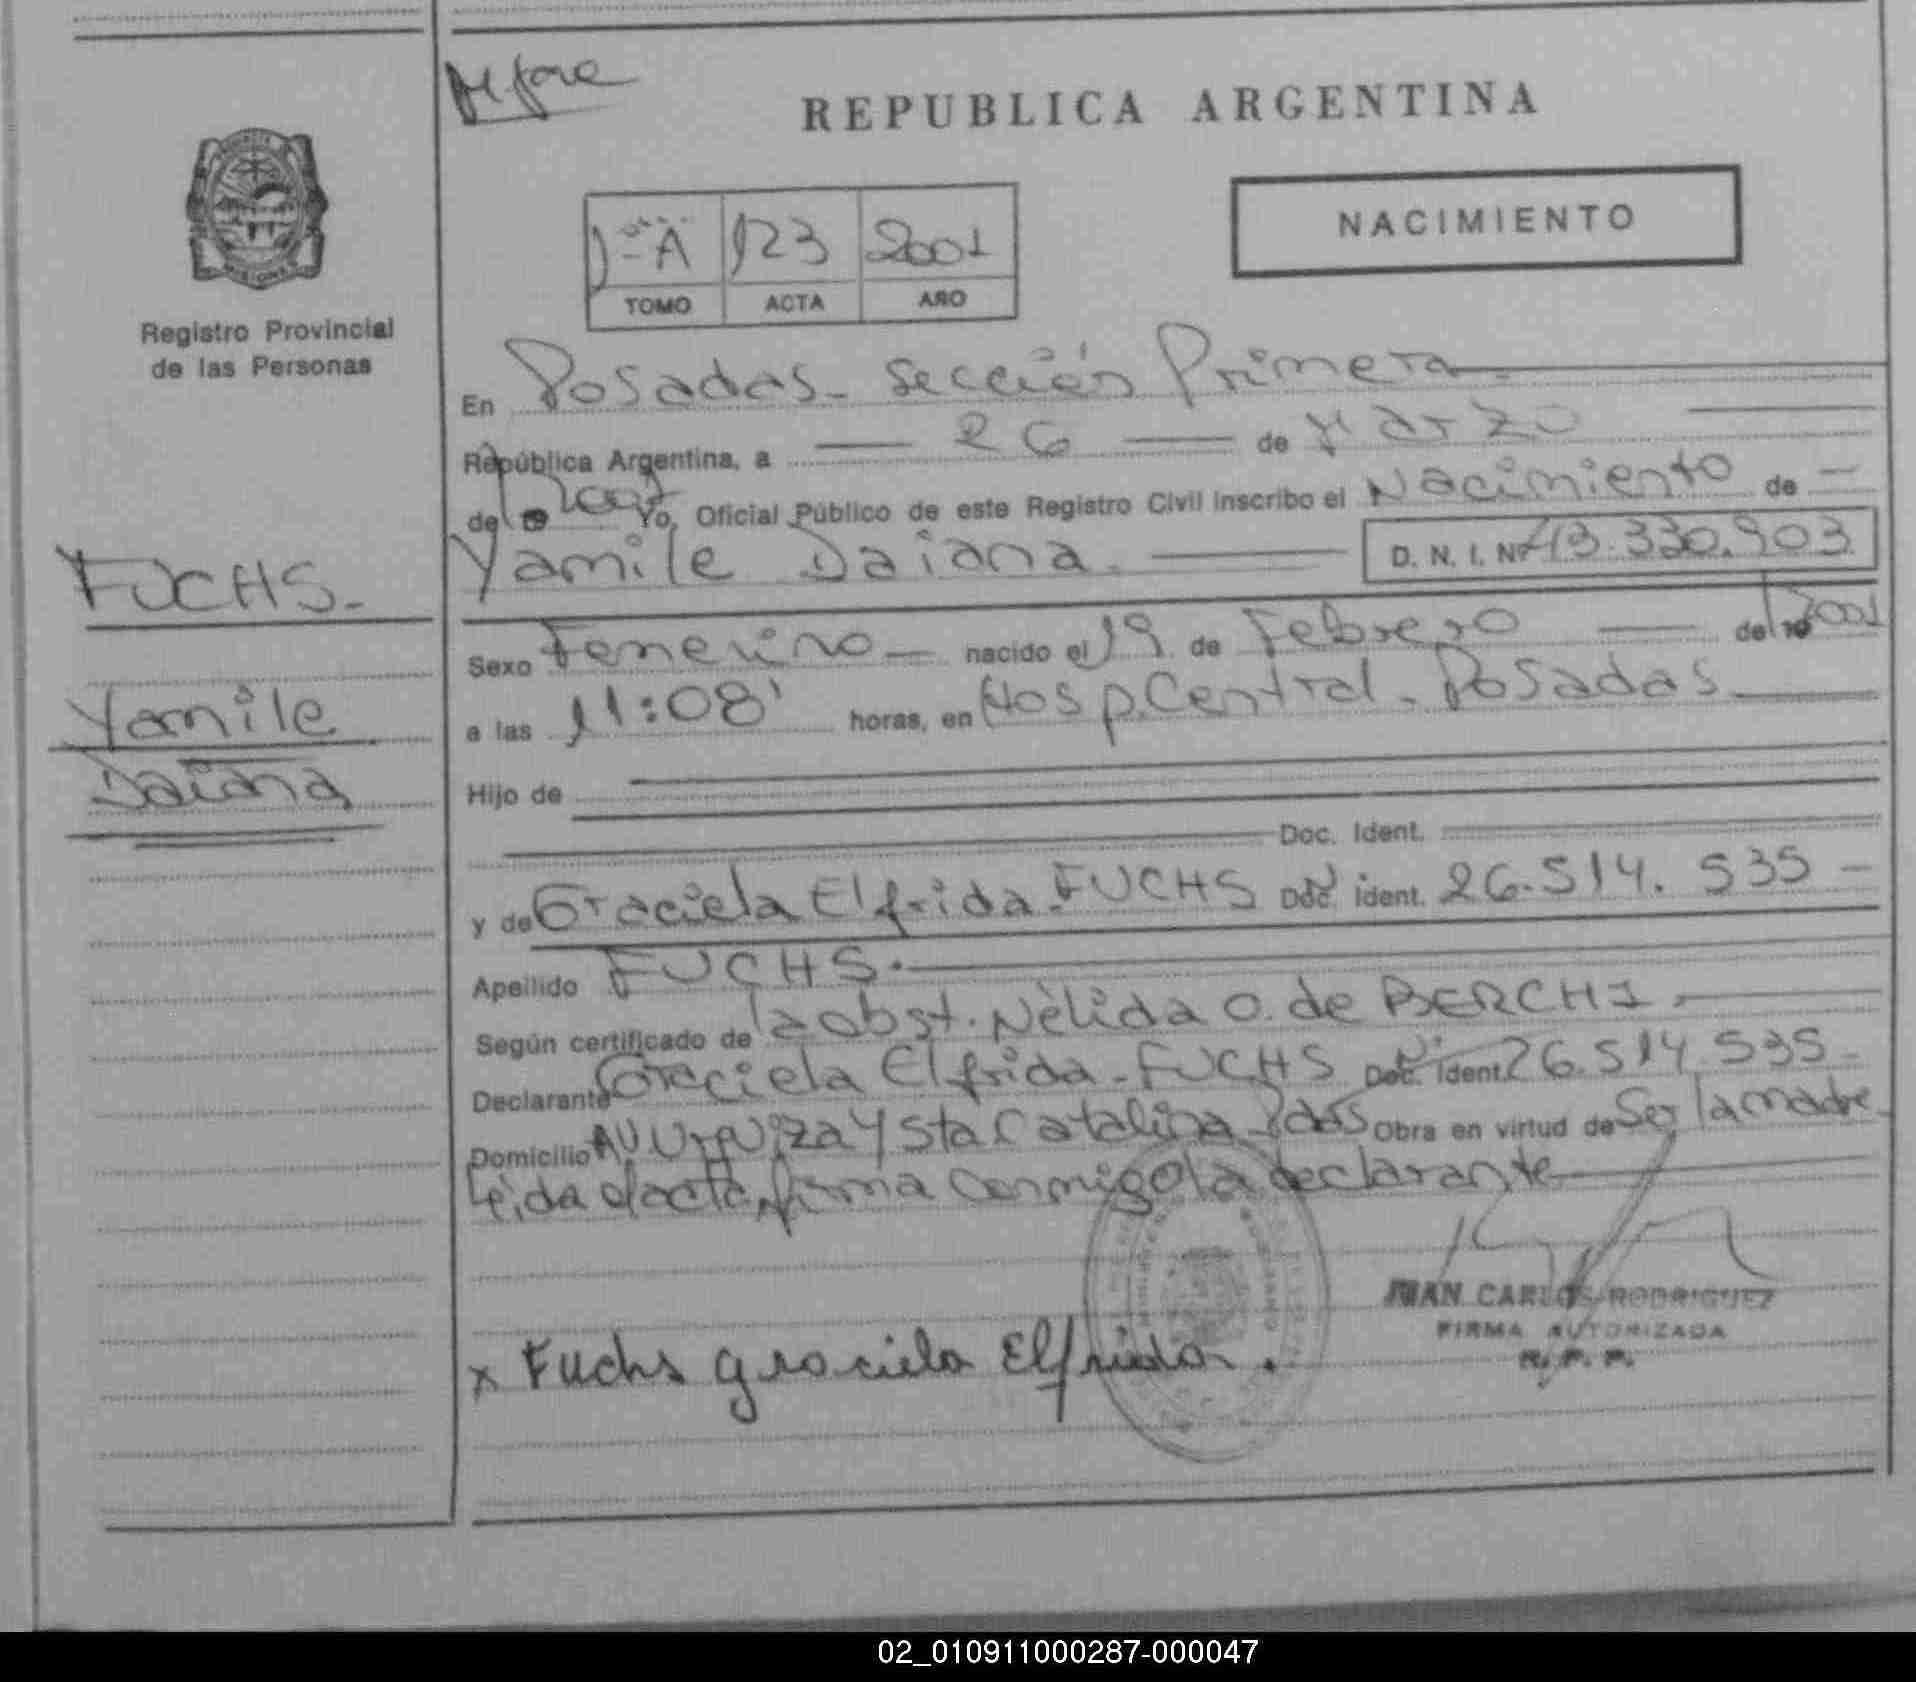 REPUBLICA ARGENTINA
NACIMIENTO
1º A 123 2001
TOMO ACTA AÑO
Registro Provincial
de las Personas
FUCHS.-
Yamile
Daiana
En Posadas - Sección Primera
República Argentina, a 26 de Marzo
de 2001 Yo, Oficial Público de este Registro Civil inscribo el Nacimiento de
Yamile Daiana. D. N. I. Nº 43.330.903
Sexo Femenino nacido el 19 de Febrero de 2001
a las 11:08' horas, en Hosp. Central - Posadas
Hijo de
Doc. Ident.
y de Graciela Elfrida - FUCHS Doc. Ident. 26.514.535 -
Apellido FUCHS.
Según certificado de la obst. Nélida O. de BERCHI
Declarante Graciela Elfrida - FUCHS Doc. Ident. 26.514.535 -
Domicilio AV Urquiza y Sta Catalina - Pdas Obra en virtud de Ser la madre
Leida el acta, firma conmigo la declarante
JUAN CARLOS RODRIGUEZ
FIRMA AUTORIZADA
R. P. P.
x Fuchs graciela Elfrida.
02_010911000287-000047